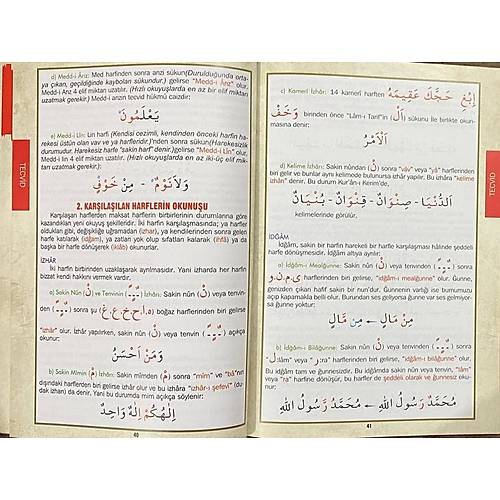 d) Medd-i Ârız: Med harfinden sonra arızi sükun(Durulduğunda orta-
ya çıkan, geçildiğinde kaybolan sükundur.) gelirse "Medd-i Ârız" olur.
Medd-i Ârız 4 elif miktarı uzatılır. (Hızlı okuyuşlarda en az bir elif miktarı
uzatmak gerekir.) Medd-i ârızın tecvid hükmü caizdir:
يَعْلَمُونَ
e) Medd-i Lîn: Lin harfi (Kendisi cezimli, kendinden önceki harfin ha-
rekesi üstün olan vav ve ya harfleridir.)'nden sonra sükun(Harekesizlik
durumudur. Harekesiz harfe "sakin harf" denir.)gelirse "Medd-i Lîn" olur.
Medd-i lin 4 elif miktarı uzatılır. (Hızlı okuyuşlarda en az iki-üç elif mik-
tarı uzatmak gerekir.):
وَلَا نَوْمٌ - مِنْ خَوْفٍ
2. KARŞILAŞILAN HARFLERİN OKUNUŞU
Karşılaşan harflerden maksat harflerin birbirlerinin durumlarına göre
kazandıkları yeni okuyuş şekilleridir. İki harfin karşılaşmasında; ya harfler
oldukları gibi, değişikliğe uğramadan (izhar), ya kendilerinden sonra gelen
harfe katılarak (idğam), ya zatları yok olup sıfatları kalarak (ihfâ) ya da
başka bir harfe dönüşerek (iklâb) okunurlar.
İZHÂR
İki harfin birbirinden uzaklaşarak ayrılmasıdır. Yani izharda her harfin
bizzat kendi vardır.
a) Sakin Nûn (نْ) ve Tenvinin İzhârı: Sakin nûn (نْ) veya tenvin-
den sonra şu (ه,ا,ح,خ,ع,غ) boğaz harflerinden biri gelirse
"izhâr" olur. İzhâr yapılırken, sakin nûn (نْ) veya tenvin açıkça
okunur:
وَمَنْ اَحْسَنُ
b) Sakin Mîmin (مْ) İzhârı: Sakin mîmden (مْ) sonra "mîm" ve "bâ"nın
dışındaki harflerden biri gelirse izhâr olur ve bu izhâra "izhâr-ı şefevî" (du-
dak izharı) da denir. Yani bu durumda mim açıkça söylenir:
اِلٰهُكُمْ اِلٰهٌ وَاحِدٌ
40
TECVİD
c) Kamerî İzhâr: 14 kamerî harften اِبْغِ حَجَّكَ وَخَفْ عَقِيمَهُ
birinden önce "Lâm-ı Tarif"in (اَلْ) sükûnu ile birlikte okun-
masına denir:
اَلْاَمْرُ
d) Kelime İzhâr: Sakin nûndan (نْ) sonra "vâv" veya "yâ" harflerinden
biri gelir ve bunlar aynı kelimede bulunursa izhâr yapılır. Bu izhâra "kelime
izhârı" denir. Bu durum Kur'ân-ı Kerim'de,
اَلدُّنْيَا - صِنْوَانٌ - قِنْوَانٌ - بُنْيَانٌ
kelimelerinde görülür.
İDĞÂM
İdğâm, sakin bir harfin harekeli bir harfle karşılaşması hâlinde şeddeli
harfe dönüşmesidir. İdğâm altıya ayrılır:
a) İdğâm-ı Mealğunne: Sakin nûn (نْ) veya tenvinden sonra
(ي,م,ن,و) harflerinden biri gelirse, "idğâm-ı mealğunne" olur. Ğunne,
genizden çıkan hafif gizli sakin bir nun'dur. Ğunnenin varlığı ise burnumuzu
açıp kapamakla belli olur. Burundan ses geliyorsa ğunne var ses gelmiyor-
sa ğunne yoktur:
مِنْ مَالٍ ← مِمَّالٍ
b) İdğâm-ı Bilâğunne: Sakin nûn (نْ) veya tenvinden sonra
"ل:lâm" veya "ر:ra" harflerinden biri gelirse, "idğâm-ı bilâğunne" olur.
Bu idğâm tam ve ğunnesizdir. Bu idğâmda sakin nûn veya tenvin, "lâm"
veya "ra" harfine dönüşür, bu harfler de şeddeli olarak ve ğunnesiz oku-
nur:
مُحَمَّدٌ رَسُولُ اللهِ ← مُحَمَّدُ رَّسُولُ اللهِ
41
TECVİD